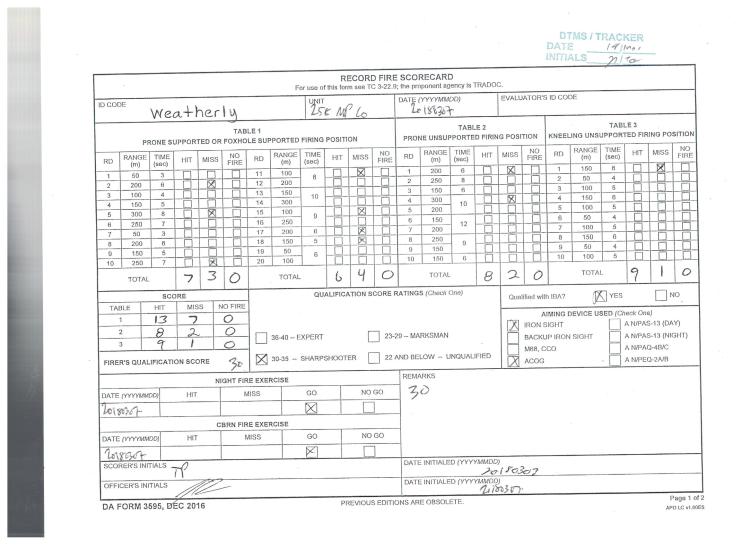 DTMS / TRACKER
DATE
INITIALS
RECORD FIRE SCORECARD
For use of this form see TC 3-22.9; the proponent agency is TRADOC.
ID CODE Weatherly
UNIT
DATE (YYYYMMDD) 20180307
EVALUATOR'S ID CODE
TABLE 1
PRONE SUPPORTED OR FOXHOLE SUPPORTED FIRING POSITION
TABLE 2
PRONE UNSUPPORTED FIRING POSITION
TABLE 3
KNEELING UNSUPPORTED FIRING POSITION
RD RANGE (m) TIME (sec) HIT MISS NO FIRE RD RANGE (m) TIME (sec) HIT MISS NO FIRE RD RANGE (m) TIME (sec) HIT MISS NO FIRE RD RANGE (m) TIME (sec) HIT MISS NO FIRE
1 50 3 11 100 8 1 200 6 1 150 8
2 200 6 12 200 2 250 8 2 50 4
3 100 4 13 150 10 3 150 6 3 100 5
4 150 5 14 300 4 300 10 4 150 6
5 300 8 15 100 9 5 200 5 100 5
6 250 7 16 250 6 150 12 6 50 4
7 50 3 17 200 6 7 200 7 100 5
8 200 6 18 150 5 8 250 9 8 150 6
9 150 5 19 50 6 9 150 9 50 4
10 250 7 20 100 10 150 6 10 100 5
TOTAL 7 3 0 TOTAL 6 4 0 TOTAL 8 2 0 TOTAL 9 1 0
SCORE
TABLE HIT MISS NO FIRE
1 13 7 0
2 8 2 0
3 9 1 0
FIRER'S QUALIFICATION SCORE 30
QUALIFICATION SCORE RATINGS (Check One)
36-40 -- EXPERT
23-29 -- MARKSMAN
30-35 -- SHARPSHOOTER
22 AND BELOW -- UNQUALIFIED
Qualified with IBA? YES NO
AIMING DEVICE USED (Check One)
IRON SIGHT A N/PAS-13 (DAY)
BACKUP IRON SIGHT A N/PAS-13 (NIGHT)
M68, CCO A N/PAQ-4B/C
ACOG A N/PEQ-2A/B
NIGHT FIRE EXERCISE
DATE (YYYYMMDD) HIT MISS GO NO GO
20180307
CBRN FIRE EXERCISE
DATE (YYYYMMDD) HIT MISS GO NO GO
20180307
REMARKS
30
SCORER'S INITIALS TP
DATE INITIALED (YYYYMMDD) 20180307
OFFICER'S INITIALS
DATE INITIALED (YYYYMMDD) 20180307
DA FORM 3595, DEC 2016
PREVIOUS EDITIONS ARE OBSOLETE.
Page 1 of 2
APD LC v1.00ES